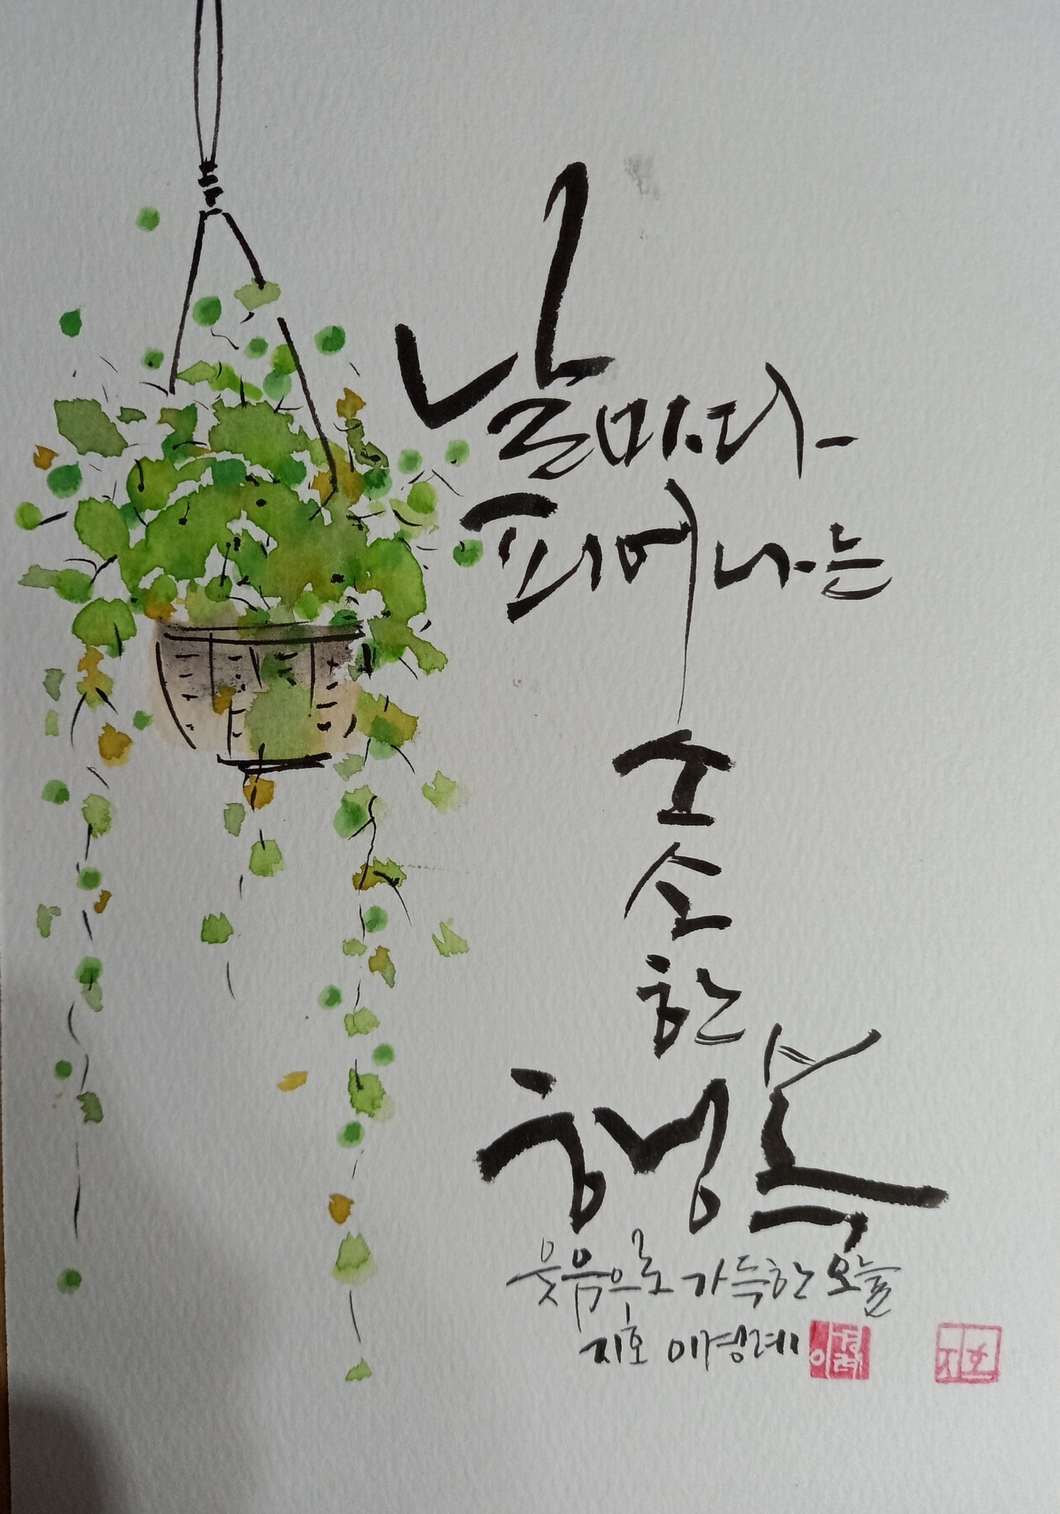 날마다
피어나는
소
소
한
행복
웃음으로 가득한 오늘
지호 이경례 이경례 지호